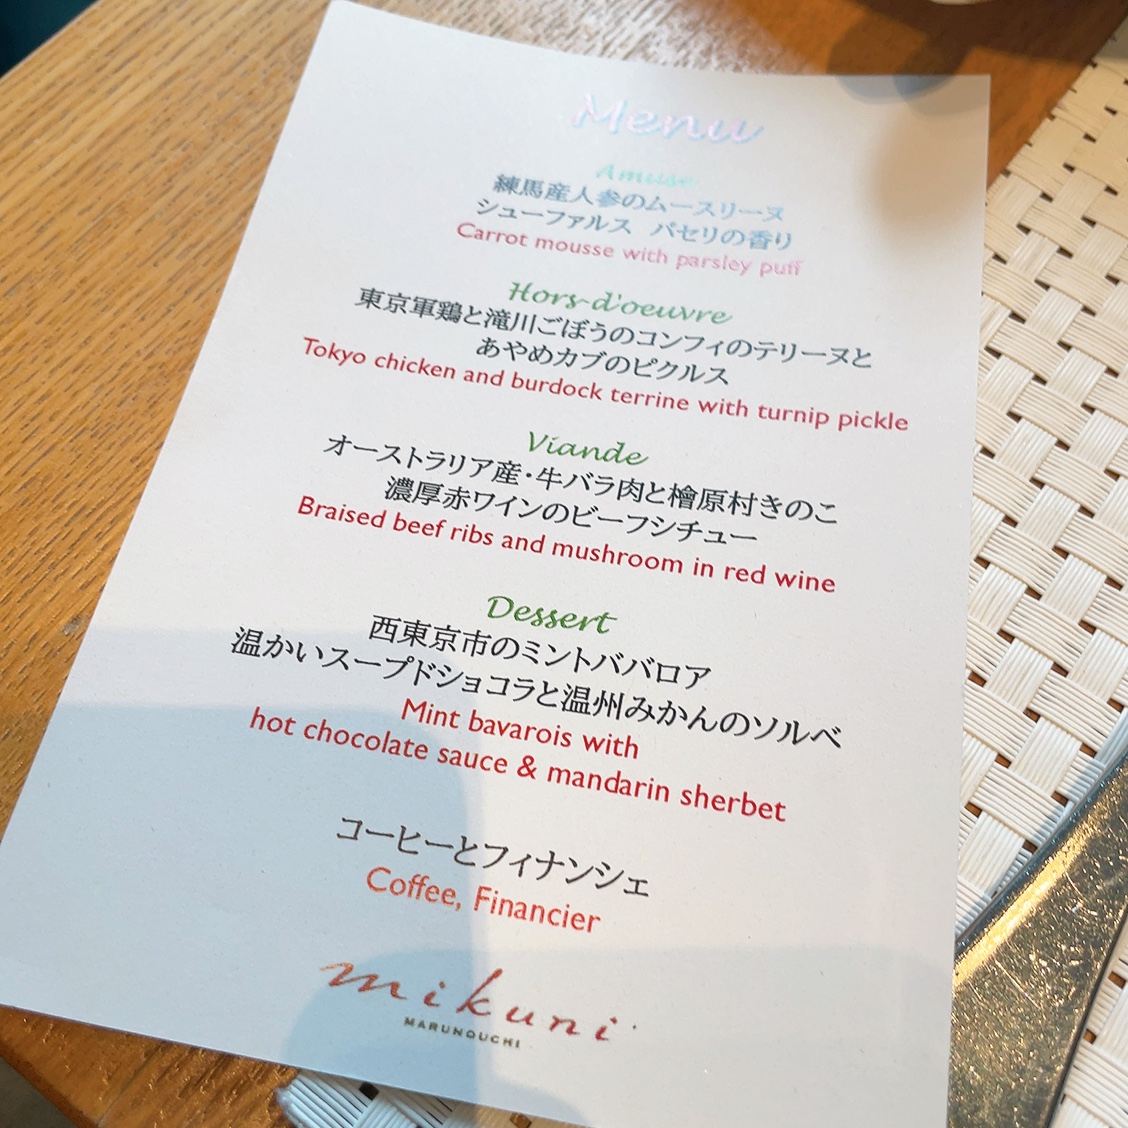 Menu
Amuse
練馬産人参のムースリーヌ
シューファルス パセリの香り
Carrot mousse with parsley puff
Hors-d'oeuvre
東京軍鶏と滝川ごぼうのコンフィのテリーヌと
あやめカブのピクルス
Tokyo chicken and burdock terrine with turnip pickle
Viande
オーストラリア産・牛バラ肉と檜原村きのこ
濃厚赤ワインのビーフシチュー
Braised beef ribs and mushroom in red wine
Dessert
西東京市のミントババロア
温かいスープドショコラと温州みかんのソルベ
Mint bavarois with
hot chocolate sauce & mandarin sherbet
コーヒーとフィナンシェ
Coffee, Financier
mikuni
MARUNOUCHI